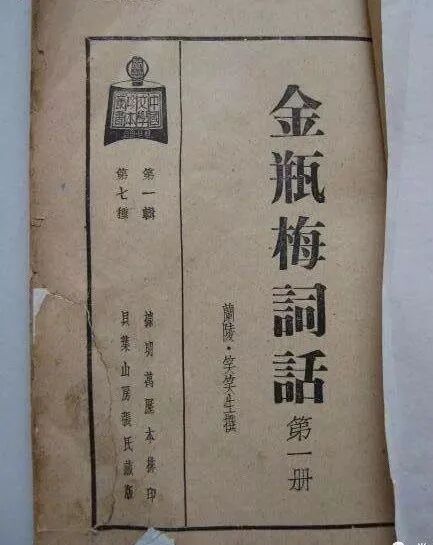 金瓶梅詞話 第一册
蘭陵·笑笑生撰
中國文學珍本叢書
第一輯
第七種
據明萬曆本排印
貝葉山房張氏藏版